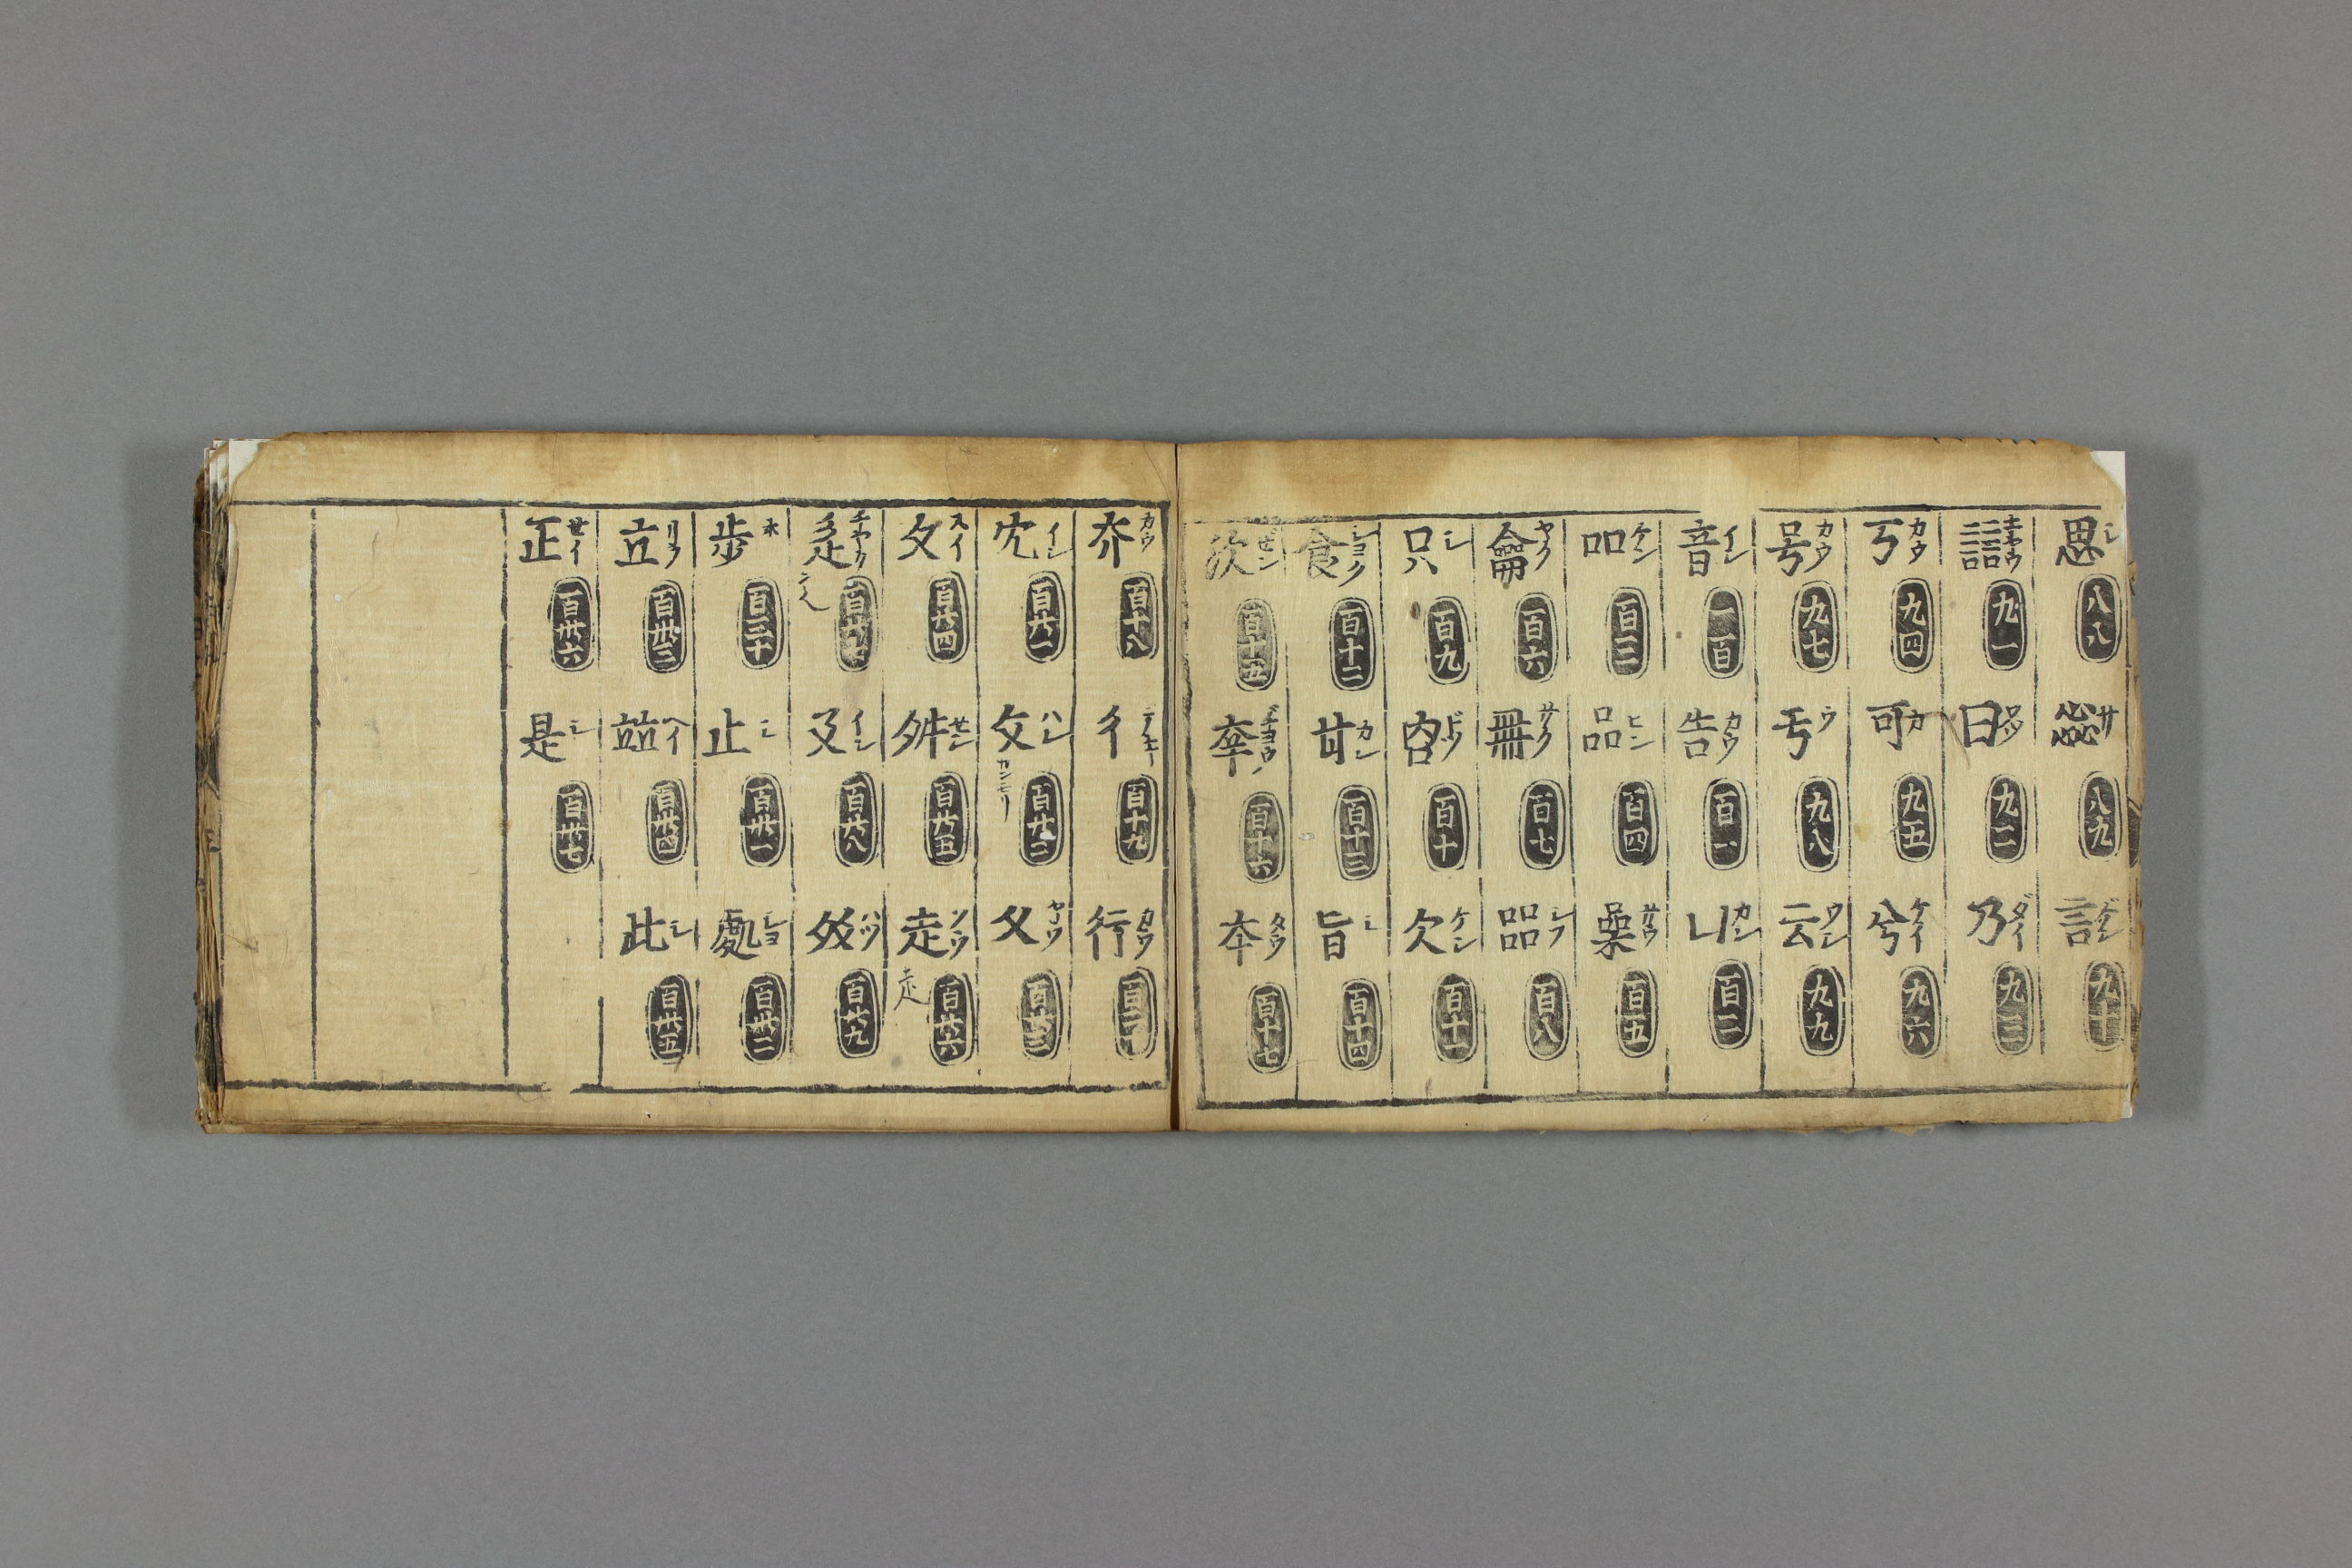 思 シ 八八 惢 サ 八九 言 ゲン 九十
誩 キヤウ 九一 曰 九二 乃 ダイ 九三
丂 カウ 九四 可 カ 九五 兮 ケイ 九六
号 カウ 九七 亐 ウ 九八 云 ウン 九九
音 イン 一百 告 カウ 百一 凵 カン 百二
吅 ケン 百三 品 ヒン 百四 喿 サウ 百五
龠 ヤク 百六 冊 サク 百七 㗊 シフ 百八
只 シ 百九 㕯 ドツ 百十 欠 ケン 百十一
食 シヨク 百十二 甘 カン 百十三 旨 シ 百十四
㳄 ゼン 百十五 㚔 デヨウ 百十六 夲 タウ 百十七
夰 カウ 百十八 彳 テキ 百十九 行 カウ 百二十
冘 イン 百廿一 癶 ハン 百廿二 爻 ヤウ 百廿三
夊 スイ 百廿四 舛 セン 百廿五 走 ソウ 百廿六
走
辵 チヤク 百廿七 廴 イン 百廿八 癶 ハツ 百廿九
歩 ホ 百三十 止 シ 百卅一 處 シヨ 百卅二
立 リフ 百卅三 竝 ヘイ 百卅四 此 シ 百卅五
正 セイ 百卅六 是 シ 百卅七